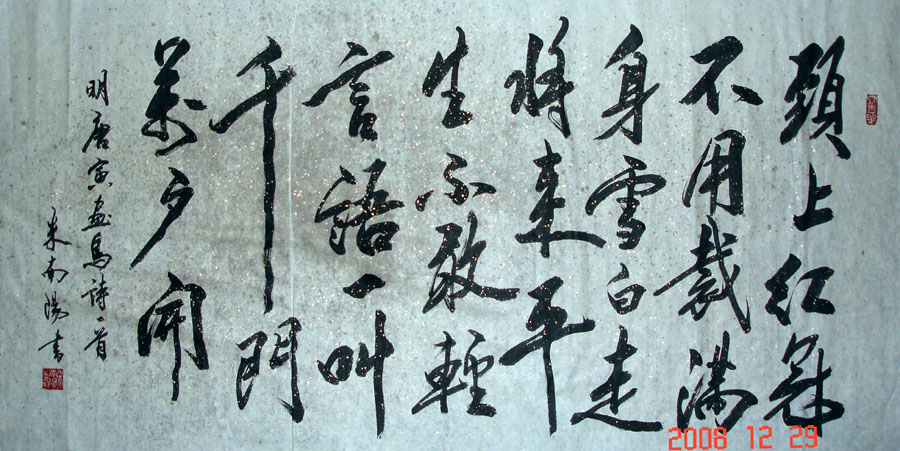 頭上红冠
不用裁滿
身雪白走
将来平
生不敢輕
言語一叫
千門
萬户開
明唐寅画鳥詩一首
朱南陽書
2008 12 29